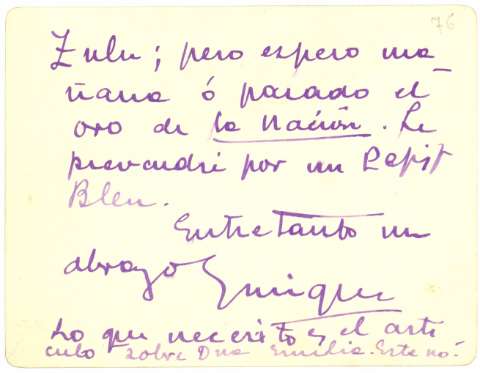 76
Zulu; pero espero ma_
ñana ó pasado el
oro de la Nación. Le
prevendré por un Petit
Bleu.
Entretanto un
abrazo Enrique
Lo que necesito es el arti
culo sobre Dña Emilia. Este no-